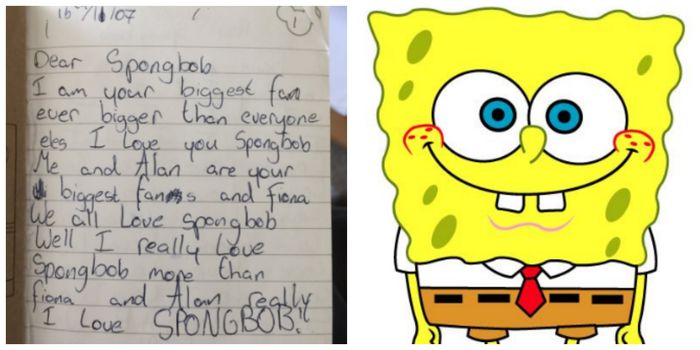 16/11/07
1
Dear Spongbob
I am your biggest fan
ever bigger than everyone
eles I Love you Spongbob
Me and Alan are your
biggest fans and fiona
We all Love spongbob
Well I really Love
Spongbob more than
fiona and Alan really
I Love SPONGBOB!!